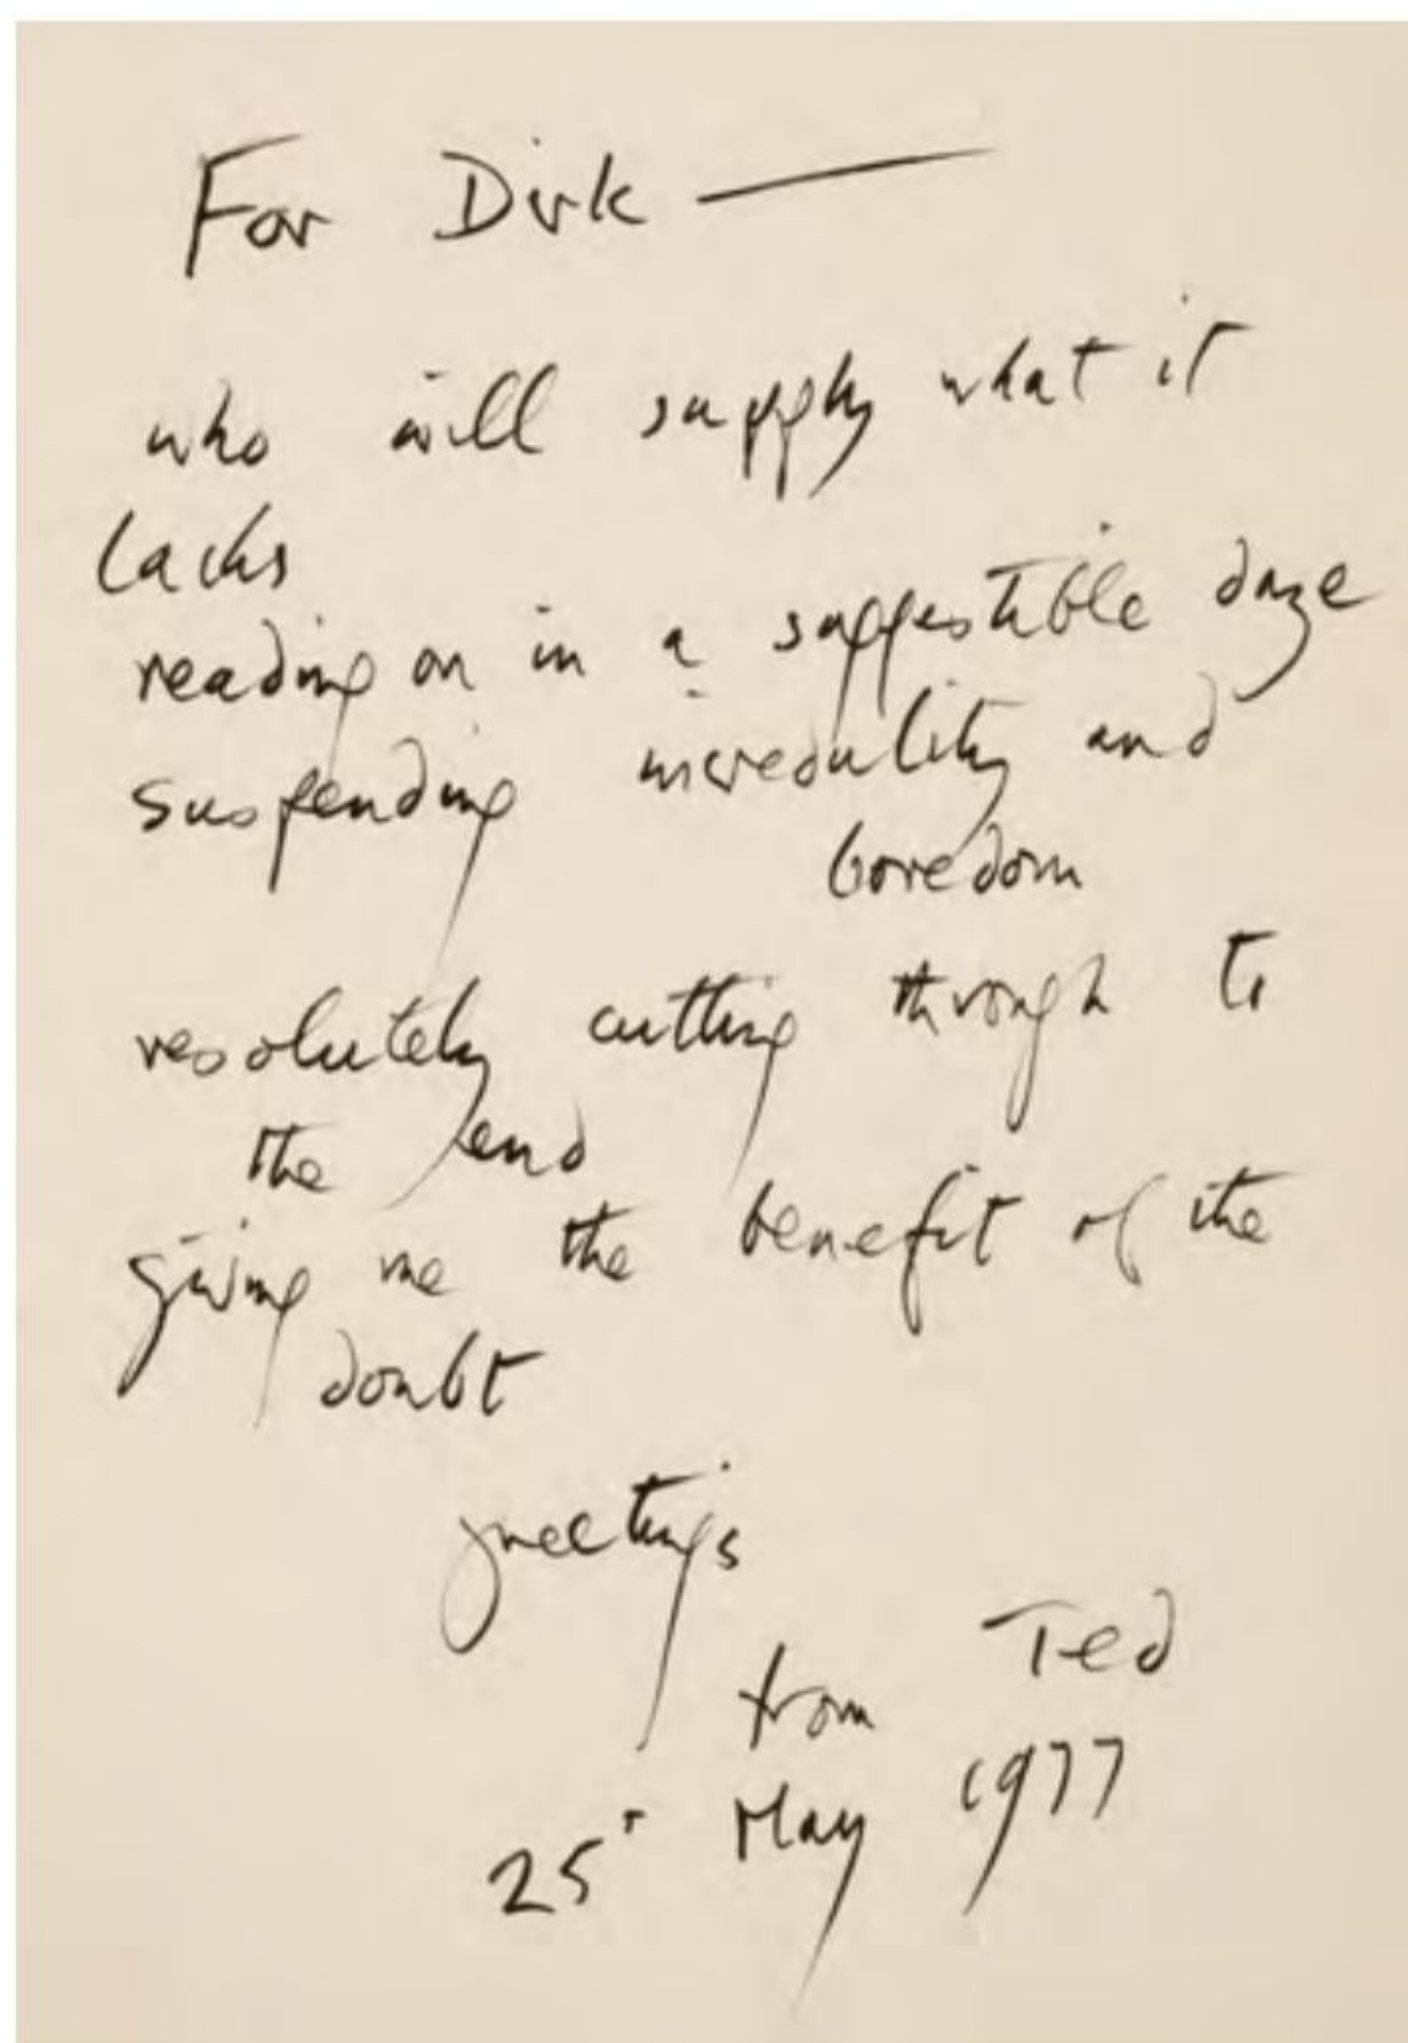 For Dirk —
who will supply what it
lacks
reading on in a suggestible daze
suspending incredulity and
boredom
resolutely cutting through to
the end
giving me the benefit of the
doubt
greetings
from Ted
25th May 1977